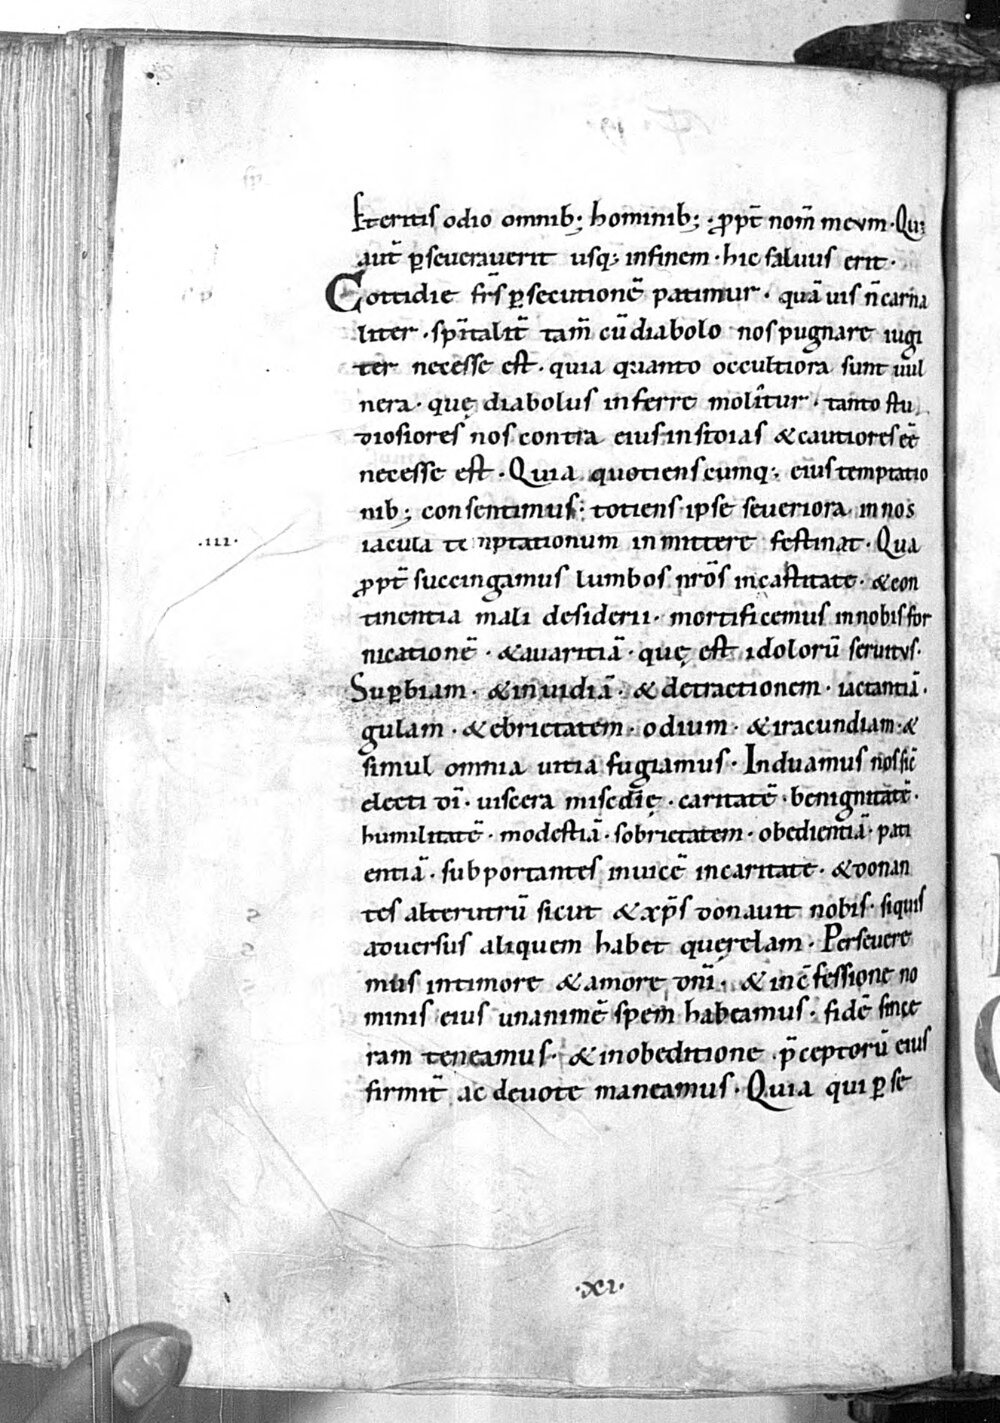 Et eritis odio omnib; hominib; · ꝓpt̄ nom̄ meum · Qui
aut̄ ꝑseuerauerit usq; infinem · hic saluus erit ·
Cottidie fr̄s ꝑsecutionē patimur · quā uis n̄ carna
liter · sp̄italit̄ tam̄ cū diabolo nos pugnare iugi
ter necesse est · quia quanto occultiora sunt uul
nera · quę diabolus inferre molitur · tanto stu
diosiores nos contra eius instoias & cautiores eē
necesse est · Quia quotienscumq; eius temptatio
nib; consentimus; totiens ipse seueriora in nos
·III· iacula temptationum inmittere festinat · Qua
ꝓpt̄ succingamus lumbos nr̄os incastitate · & con
tinentia mali desiderii · mortificemus innobis for
nicationē · & auaritiā · quę est idolorū seruitus ·
Suꝑbiam · & inuidiā · & detractionem · iactantiā ·
gulam · & ebrietatem · odium · & iracundiam · &
simul omnia uitia fugiamus · Induamus nos sic̄
electi dī · uiscera misc̄dię · caritatē · benignitatē ·
humilitatē · modestiā · sobrietatem · obedientiā · pati
entiā · subportantes inuicē incaritate · & donan
tes alterutrū sicut & xp̄s donauit nobis · siquis
aduersus aliquem habet querelam · Perseuere
mus intimore & amore dn̄i · & incfessione no
minis eius unanimē spem habeamus · fidē since
ram teneamus · & inobeditione p̄ceptorū eius
firmit̄ ac deuote maneamus · Quia qui ꝑse
·XI·